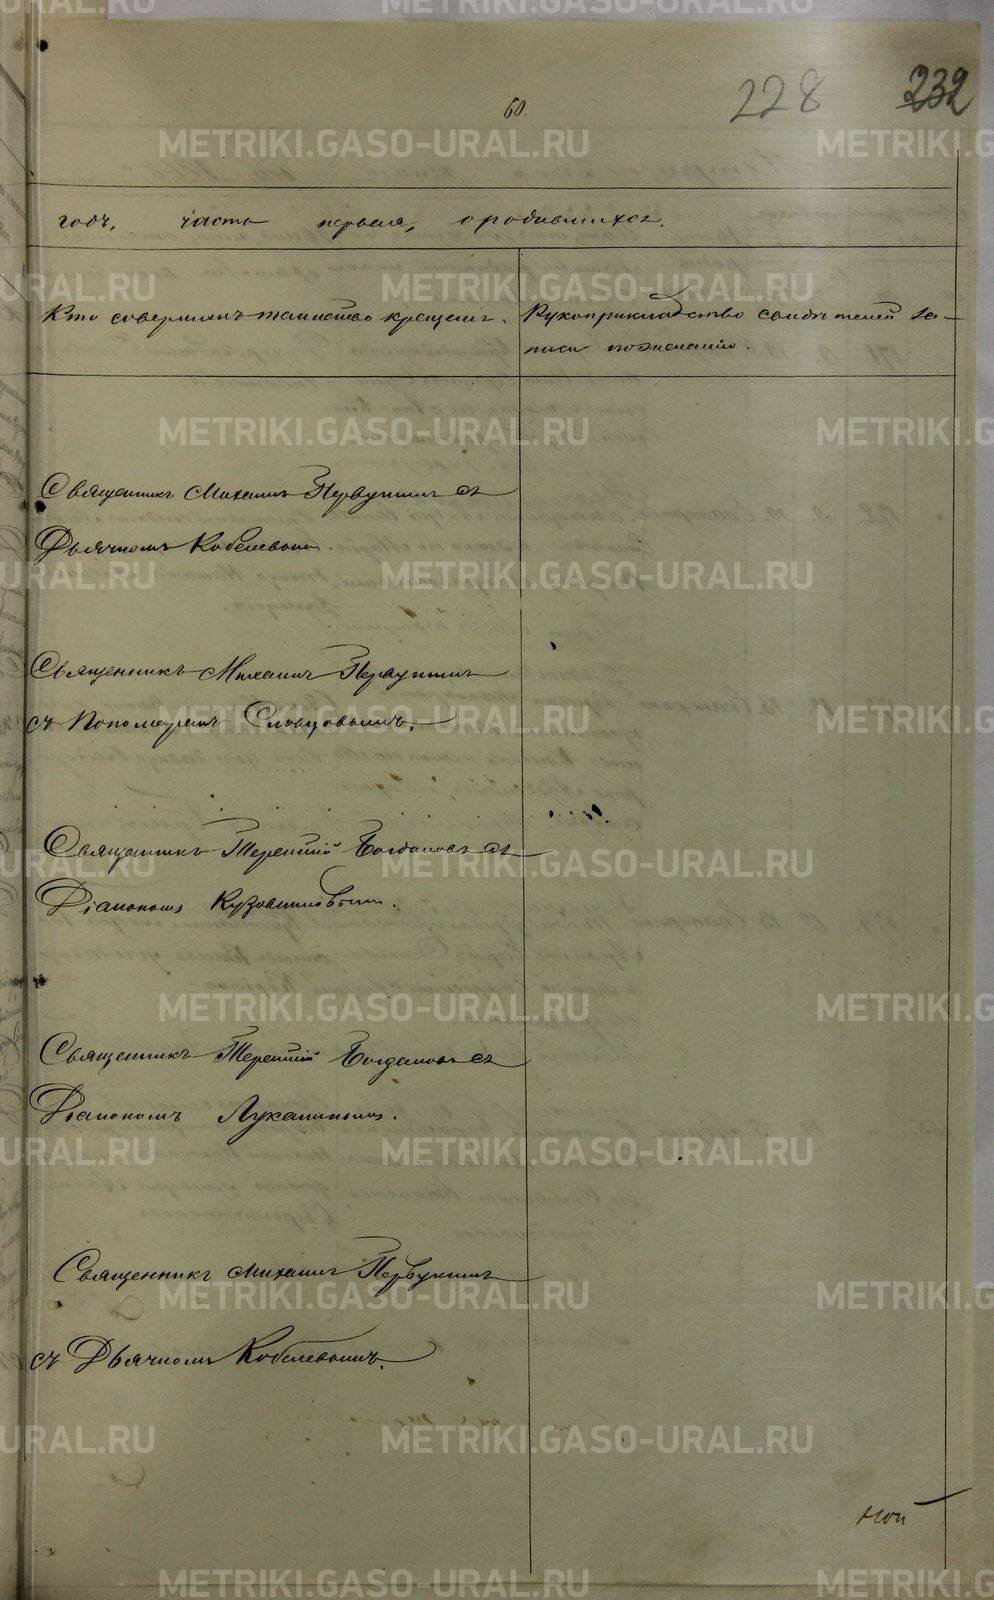 60.
228
232
годъ, часть первая, о родившихся.
Кто совершилъ таинство крещенiя.
Рукоприкладство свидѣтелей за-
писи по желанiю.
Священникъ Михаилъ Первушинъ съ
Дьячкомъ Кобелевымъ.
Священникъ Михаилъ Первушинъ
съ Пономаремъ Словцовымъ.
Священникъ Терентiй Богдановъ съ
Дiакономъ Кузовниковымъ.
Священникъ Терентiй Богдановъ съ
Дiакономъ Лукинымъ.
Священникъ Михаилъ Первушинъ
съ Дьячкомъ Кобелевымъ.
ной
METRIKI.GASO-URAL.RU